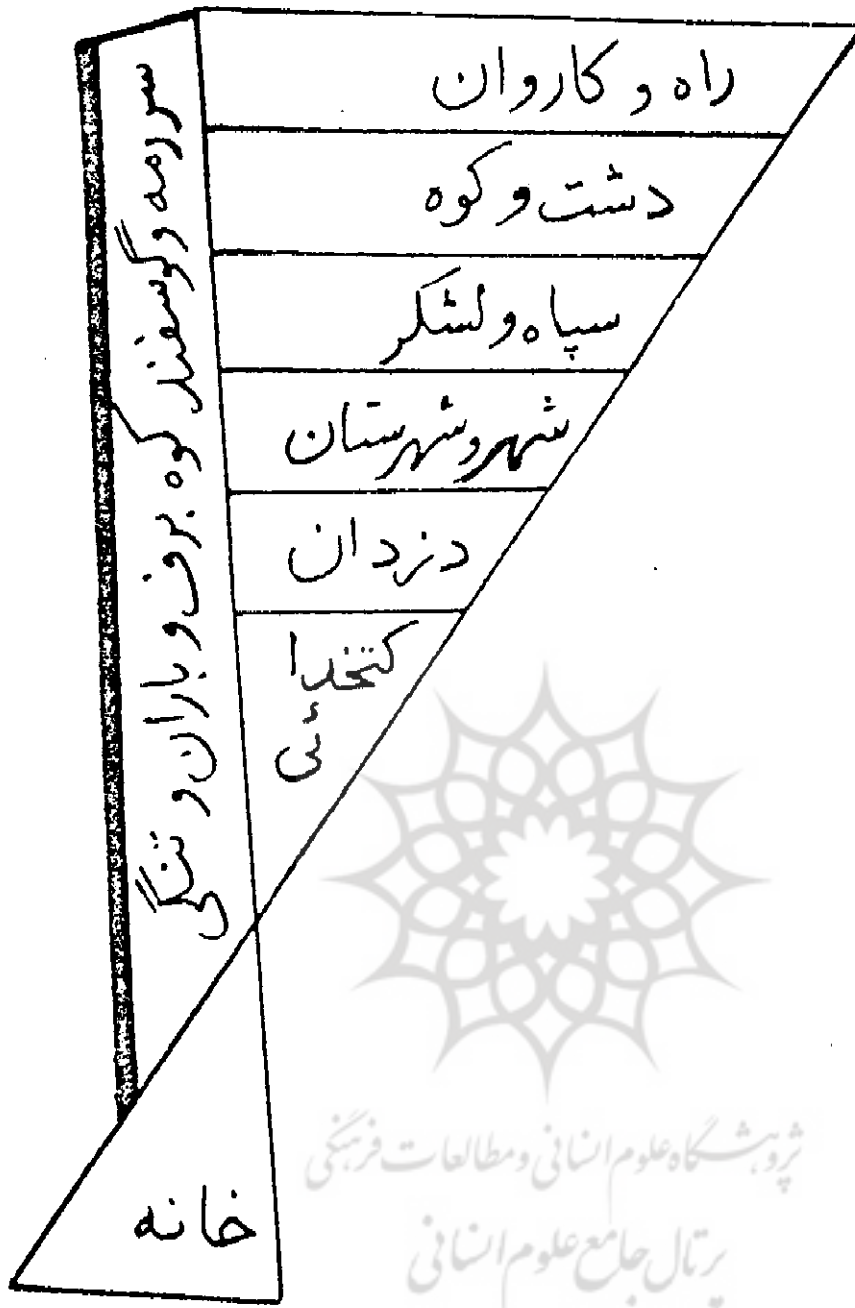 راه و کاروان
دشت و کوه
سپاه و لشکر
شهر و شهرستان
دزدان
کتخدا
ئی
سر رمه و گوسفند کوه برف و باران و تنگی
خانه
پژوهشگاه علوم انسانی و مطالعات فرهنگی
پرتال جامع علوم انسانی